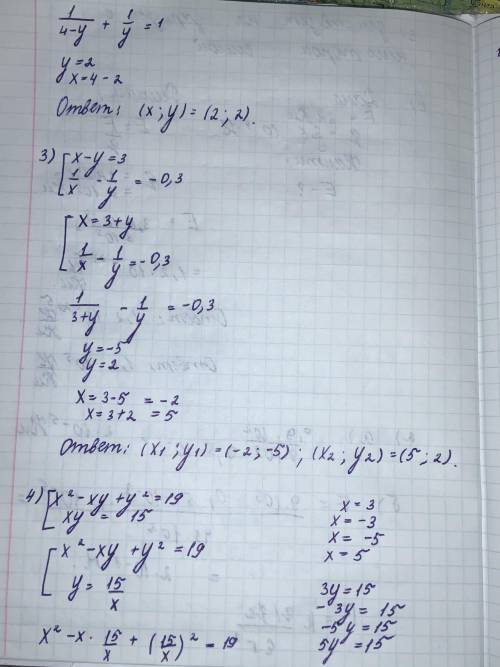 1/(4-y) + 1/y = 1
y = 2
x = 4 - 2
Ответ: (x; y) = (2; 2).
3) [x - y = 3
1/x - 1/y = -0,3
[x = 3 + y
1/x - 1/y = -0,3
1/(3+y) - 1/y = -0,3
y = -5
y = 2
x = 3 - 5 = -2
x = 3 + 2 = 5
Ответ: (x₁; y₁) = (-2; -5); (x₂; y₂) = (5; 2).
4) [x² - xy + y² = 19
xy = 15
[x² - xy + y² = 19
y = 15/x
x² - x · 15/x + (15/x)² = 19
x = 3
x = -3
x = -5
x = 5
3y = 15
-3y = 15
-5y = 15
5y = 15